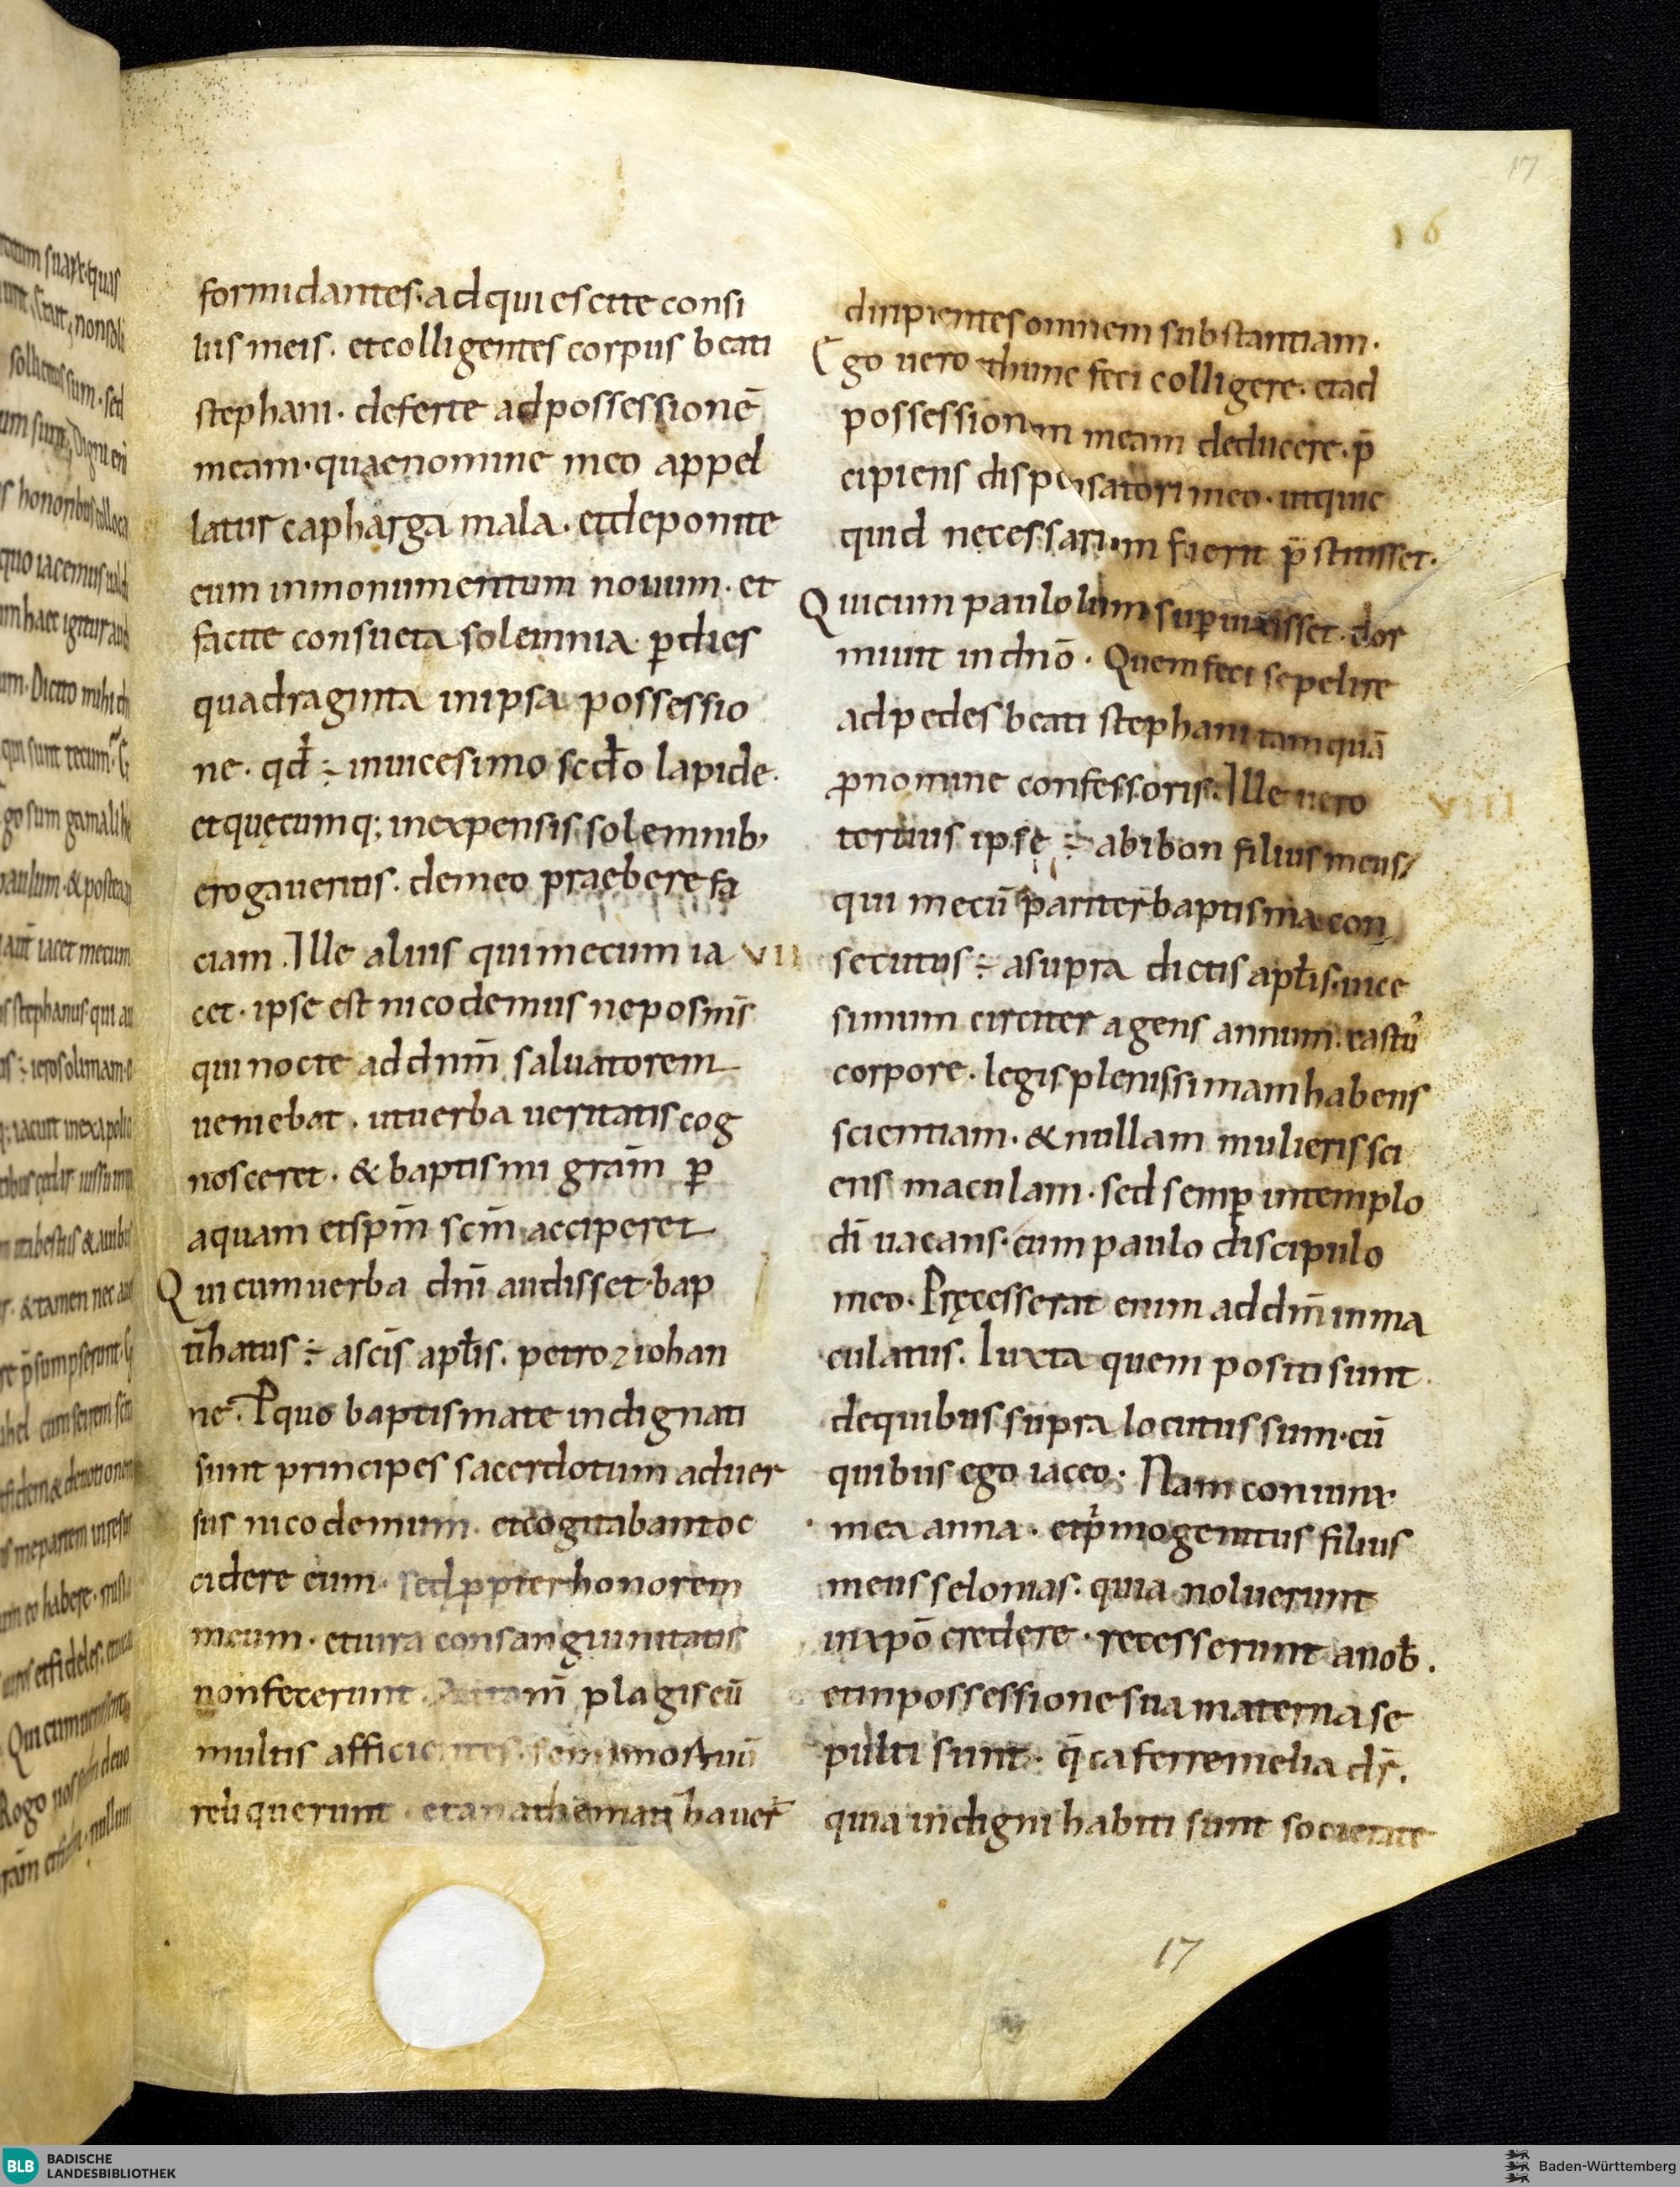 17
16
formidantes. adquiescite consi
liis meis. et colligentes corpus beati
stephani. deferte ad possessionē
meam. quae nomine meo appel
latur caphargamala. et deponite
eum in monumentum nouum. et
facite consueta solemnia. p̄ dies
quadraginta in ipsa possessio
ne. qđ ÷ in uicesimo scđo lapide.
et quęcumq; in expensis solemnib;
erogaueritis. de meo praebere fa
ciam. Ille alius qui mecum ia
VII
cet. ipse est nicodemus nepos m̄s
qui nocte ad dnm̄ saluatorem
ueniebat. ut uerba ueritatis cog
nosceret. & baptismi gram̄ p̄
aquam et spm̄ scm̄ acciperet
Qui cum uerba dnī audisset. bap
tihatus ÷ a scis̄ apƚis. petro ⁊ iohan
ne. P quo baptismate indignati
sunt principes sacerdotum aduer
sus nicodemum. et cogitabant oc
cidere eum. sed ppter honorem
meum. et iura consanguinitatis
non fecerunt. plagis eū
multis afficientes. semimortuū
reliquerunt. et anathematihauer̄
diripientes omnem substantiam.
Ego uero thunc feci colligere. et ad
possessionem meam deducere. p̄
cipiens dispensatori meo. ut quic
quid necessarium fuerit p̄stitisset.
Qui cum paululum sup̄uixisset. dor
miuit in dnō. Quem feci sepelire
ad pedes beati stephani tamquā
pro nomine confessoris. Ille uero
VIII
tertius ipse ÷ abibon filius meus
qui mecū pariter baptisma con
secutus ÷ a supra dictis apƚis. uice
simum circiter agens annum. castu᷒
corpore. legis plenissimam habens
scientiam. & nullam mulieris sci
ens maculam. sed semp̄ in templo
dī uacans. cum paulo discipulo
meo. Pręcesserat enim ad dnm̄ inma
culatus. Iuxta quem positi sunt
de quibus supra locutus sum. cū
quibus ego iaceo. Nam coniunx
mea anna. et pͥmogenitus filius
meus selomias. quia noluerunt
in xpō credere. recesserunt a nob̄.
et in possessione sua materna se
pulti sunt. q̄ caferremelia dr̄.
quia indigni habiti sunt societate
17
BLB BADISCHE
LANDESBIBLIOTHEK
Baden-Württemberg